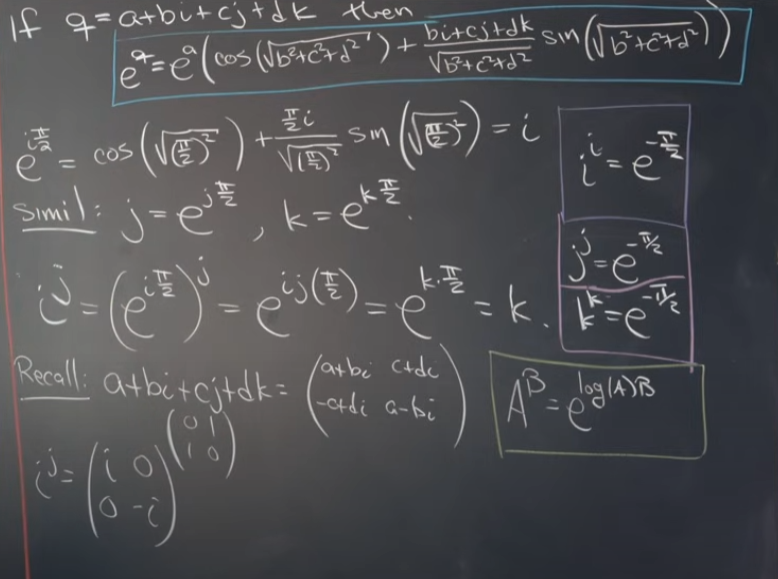 If q = a+bi+cj+dk then
e^q = e^a (cos(√(b²+c²+d²)) + (bi+cj+dk)/√(b²+c²+d²) sin(√(b²+c²+d²)))
e^(iπ/2) = cos(√((π/2)²)) + (π/2 i)/√((π/2)²) sin(√((π/2)²)) = i
i^i = e^(-π/2)
Simil: j = e^(jπ/2), k = e^(kπ/2).
j^j = e^(-π/2)
i^j = (e^(iπ/2))^j = e^(ij(π/2)) = e^(k·π/2) = k.
k^k = e^(-π/2)
Recall: a+bi+cj+dk = (a+bi c+di
-c+di a-bi)
A^B = e^(log(A)B)
i^j = (i 0
0 -i)^(0 1
1 0)